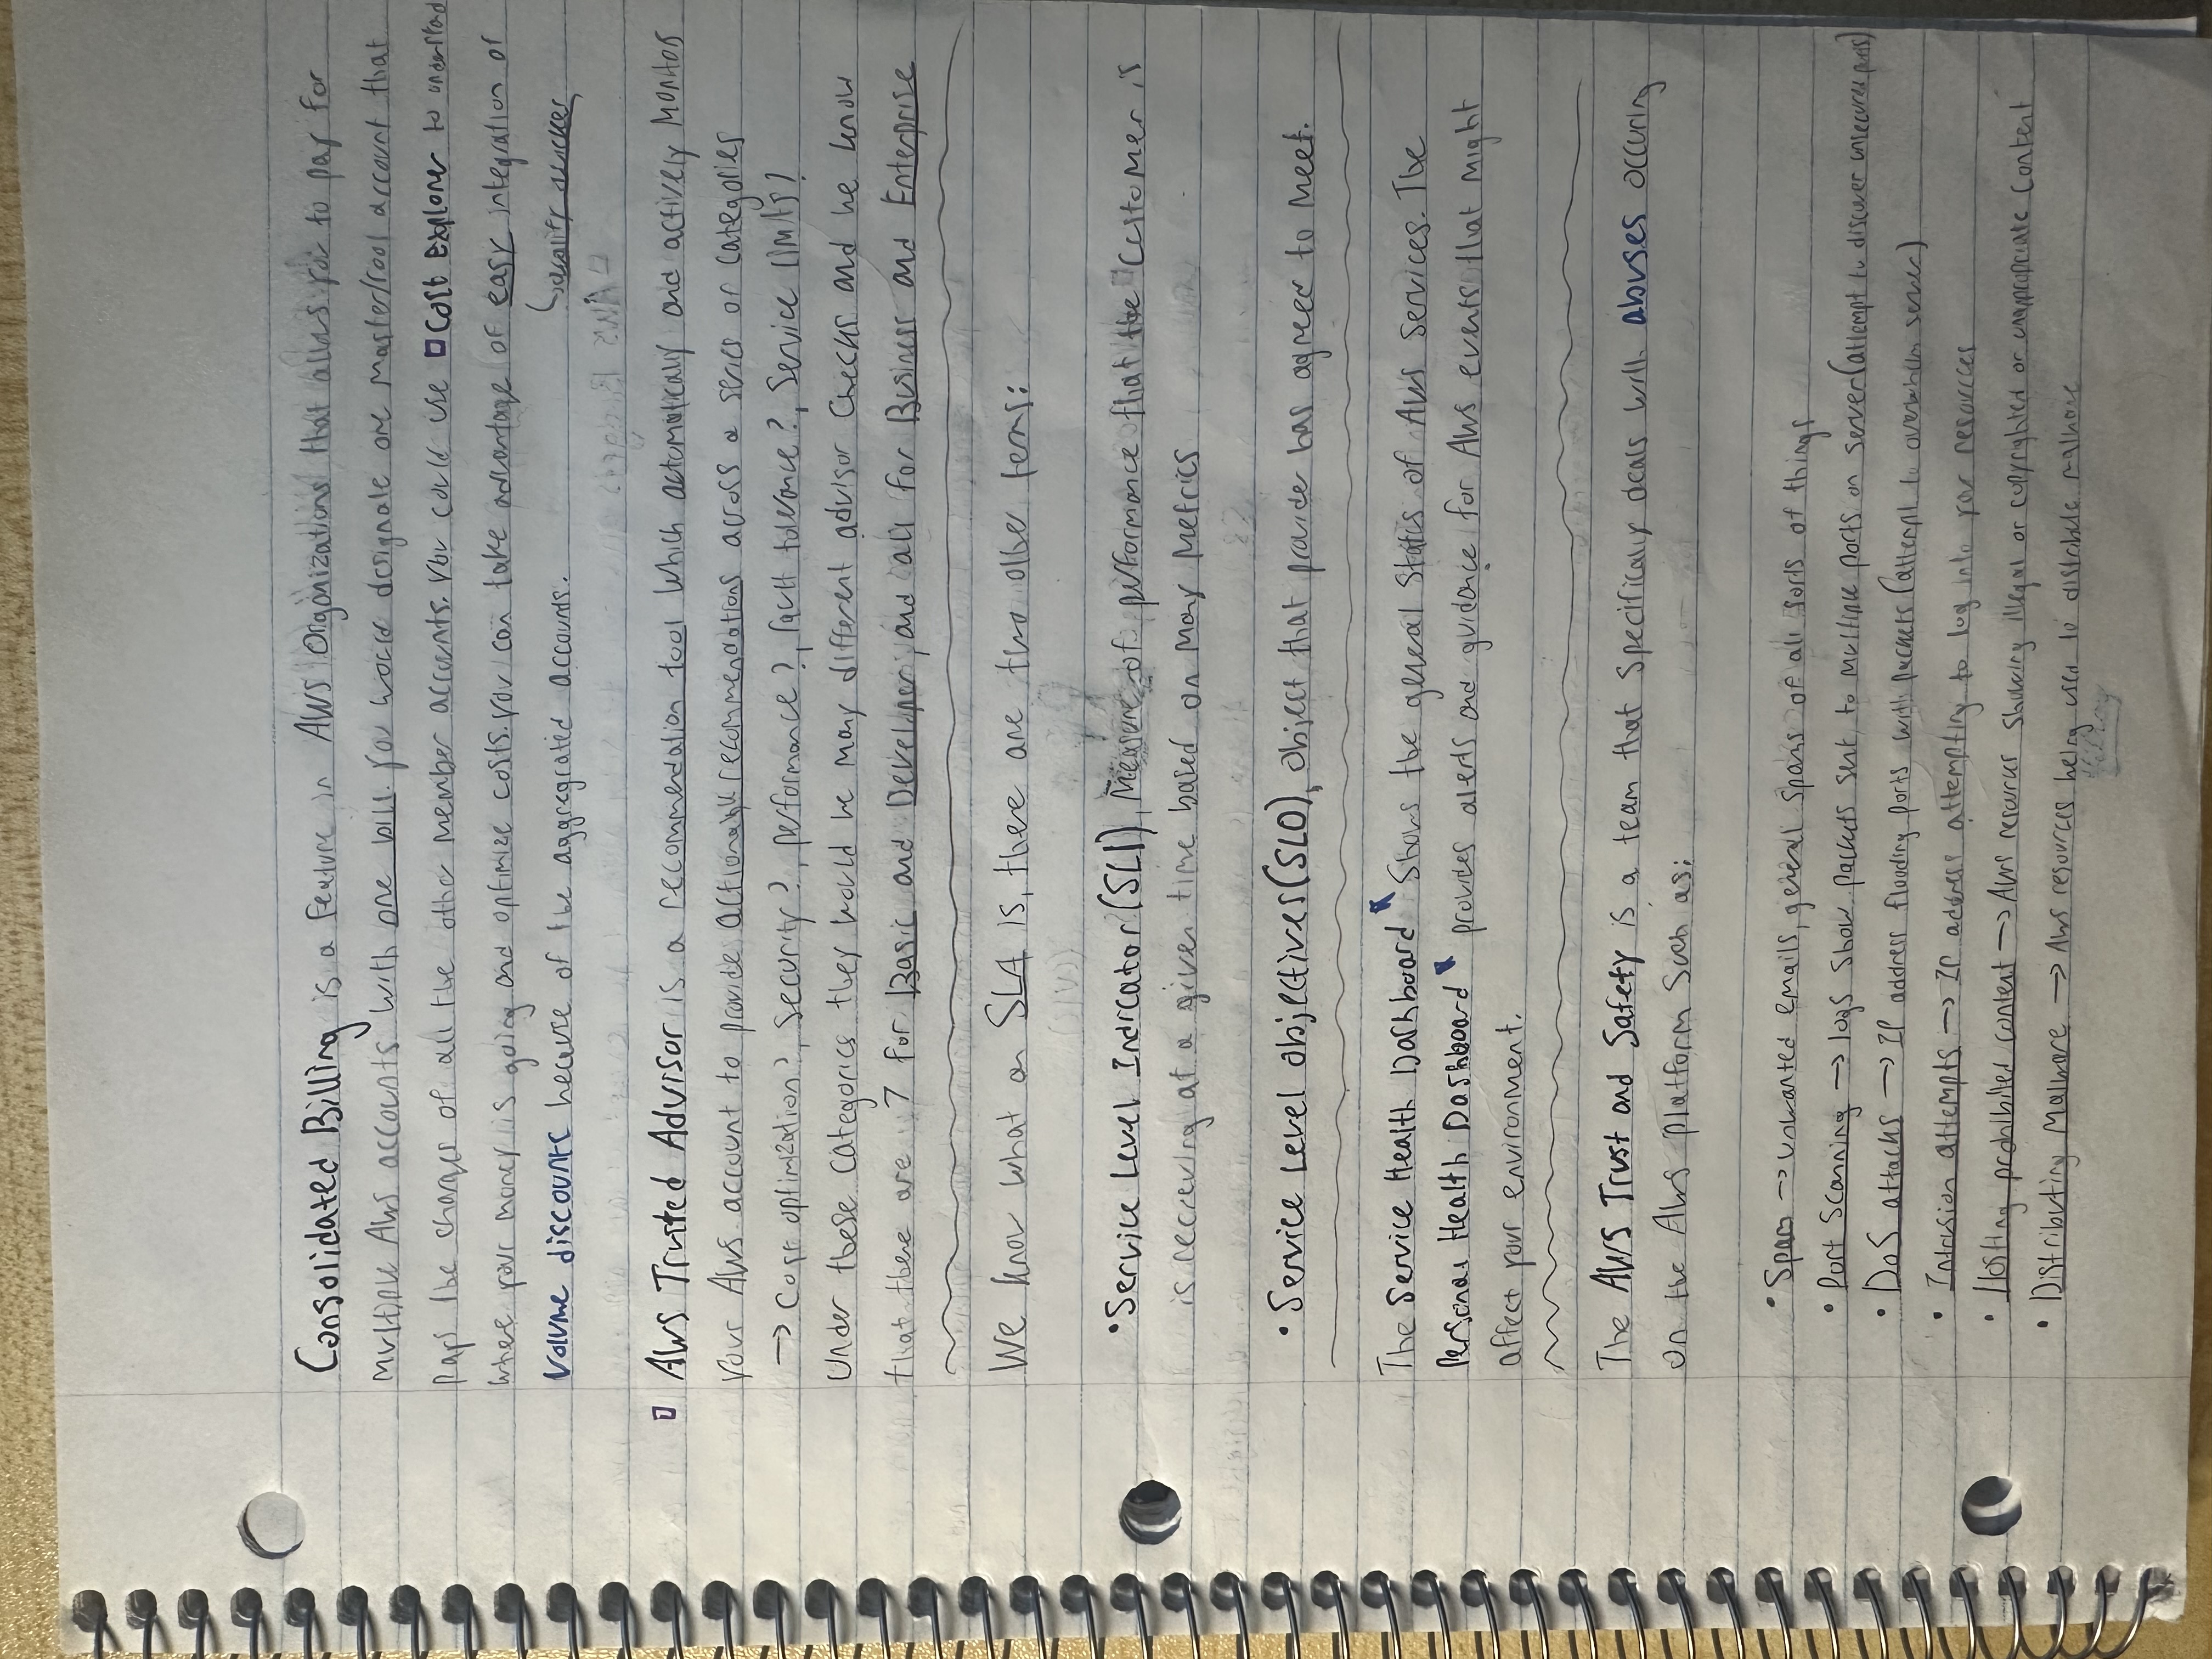 Consolidated Billing is a feature in AWS Organizations that allows you to pay for
multiple AWS accounts with one bill. You would designate one master/root account that
pays the charges of all the other member accounts. You could use Cost Explorer to understand
where your money is going and optimize costs. You can take advantage of easy integration of
volume discounts because of the aggregrated accounts.
qualify quicker
AWS Trusted Advisor is a recommendation tool which automatically and actively monitors
your AWS account to provide actionable recommendations across a series of categories
→ Cost optimization?, Security?, performance?, fault tolerance?, Service limits?
Under these categories they would be many different advisor checks and we know
that there are 7 for Basic and Developer, and all for Business and Enterprise
We know what an SLA is, there are two other terms:
• Service Level Indicator (SLI), Measure of performance that the customer is
is recieving at a given time based on many metrics
• Service Level Objectives (SLO), object that provider has agreed to meet.
The Service Health Dashboard shows the general status of AWS services. The
Personal Health Dashboard provides alerts and guidance for AWS events that might
affect your environment.
The AWS Trust and Safety is a team that specifically deals with abuses occuring
on the AWS platform such as:
• Spam → unwanted emails, general spams of all sorts of things
• Port Scanning → logs show packets sent to multiple ports on server (attempt to discover unsecured ports)
• DoS attacks → IP address flooding ports with packets (attempt to overwhelm server)
• Intrusion attempts → IP address attempting to log into your resources
• Hosting prohibited content → AWS resources showing illegal or copyrighted or unappropriate content
• Distributing Malware → AWS resources being used to distribute malware